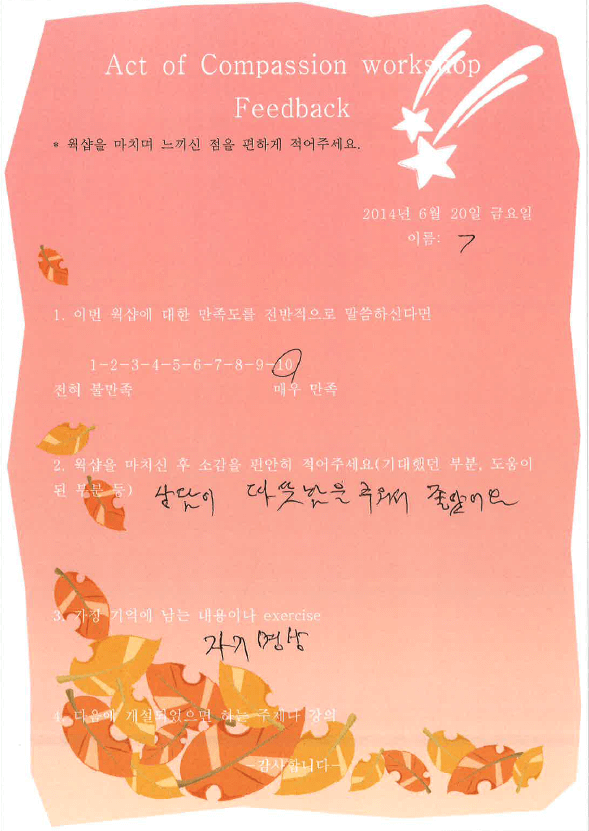 Act of Compassion workshop
Feedback
* 웍샵을 마치며 느끼신 점을 편하게 적어주세요.
2014년 6월 20일 금요일
이름: ㄱ
1. 이번 웍샵에 대한 만족도를 전반적으로 말씀하신다면
1-2-3-4-5-6-7-8-9-10
전혀 불만족 매우 만족
2. 웍샵을 마치신 후 소감을 편안히 적어주세요(기대했던 부분, 도움이
된 부분 등) 상담이 따뜻함을 주워서 좋았어요
3. 가장 기억에 남는 내용이나 exercise
자기 명상
4. 다음에 개설되었으면 하는 주제나 강의
-감사합니다-